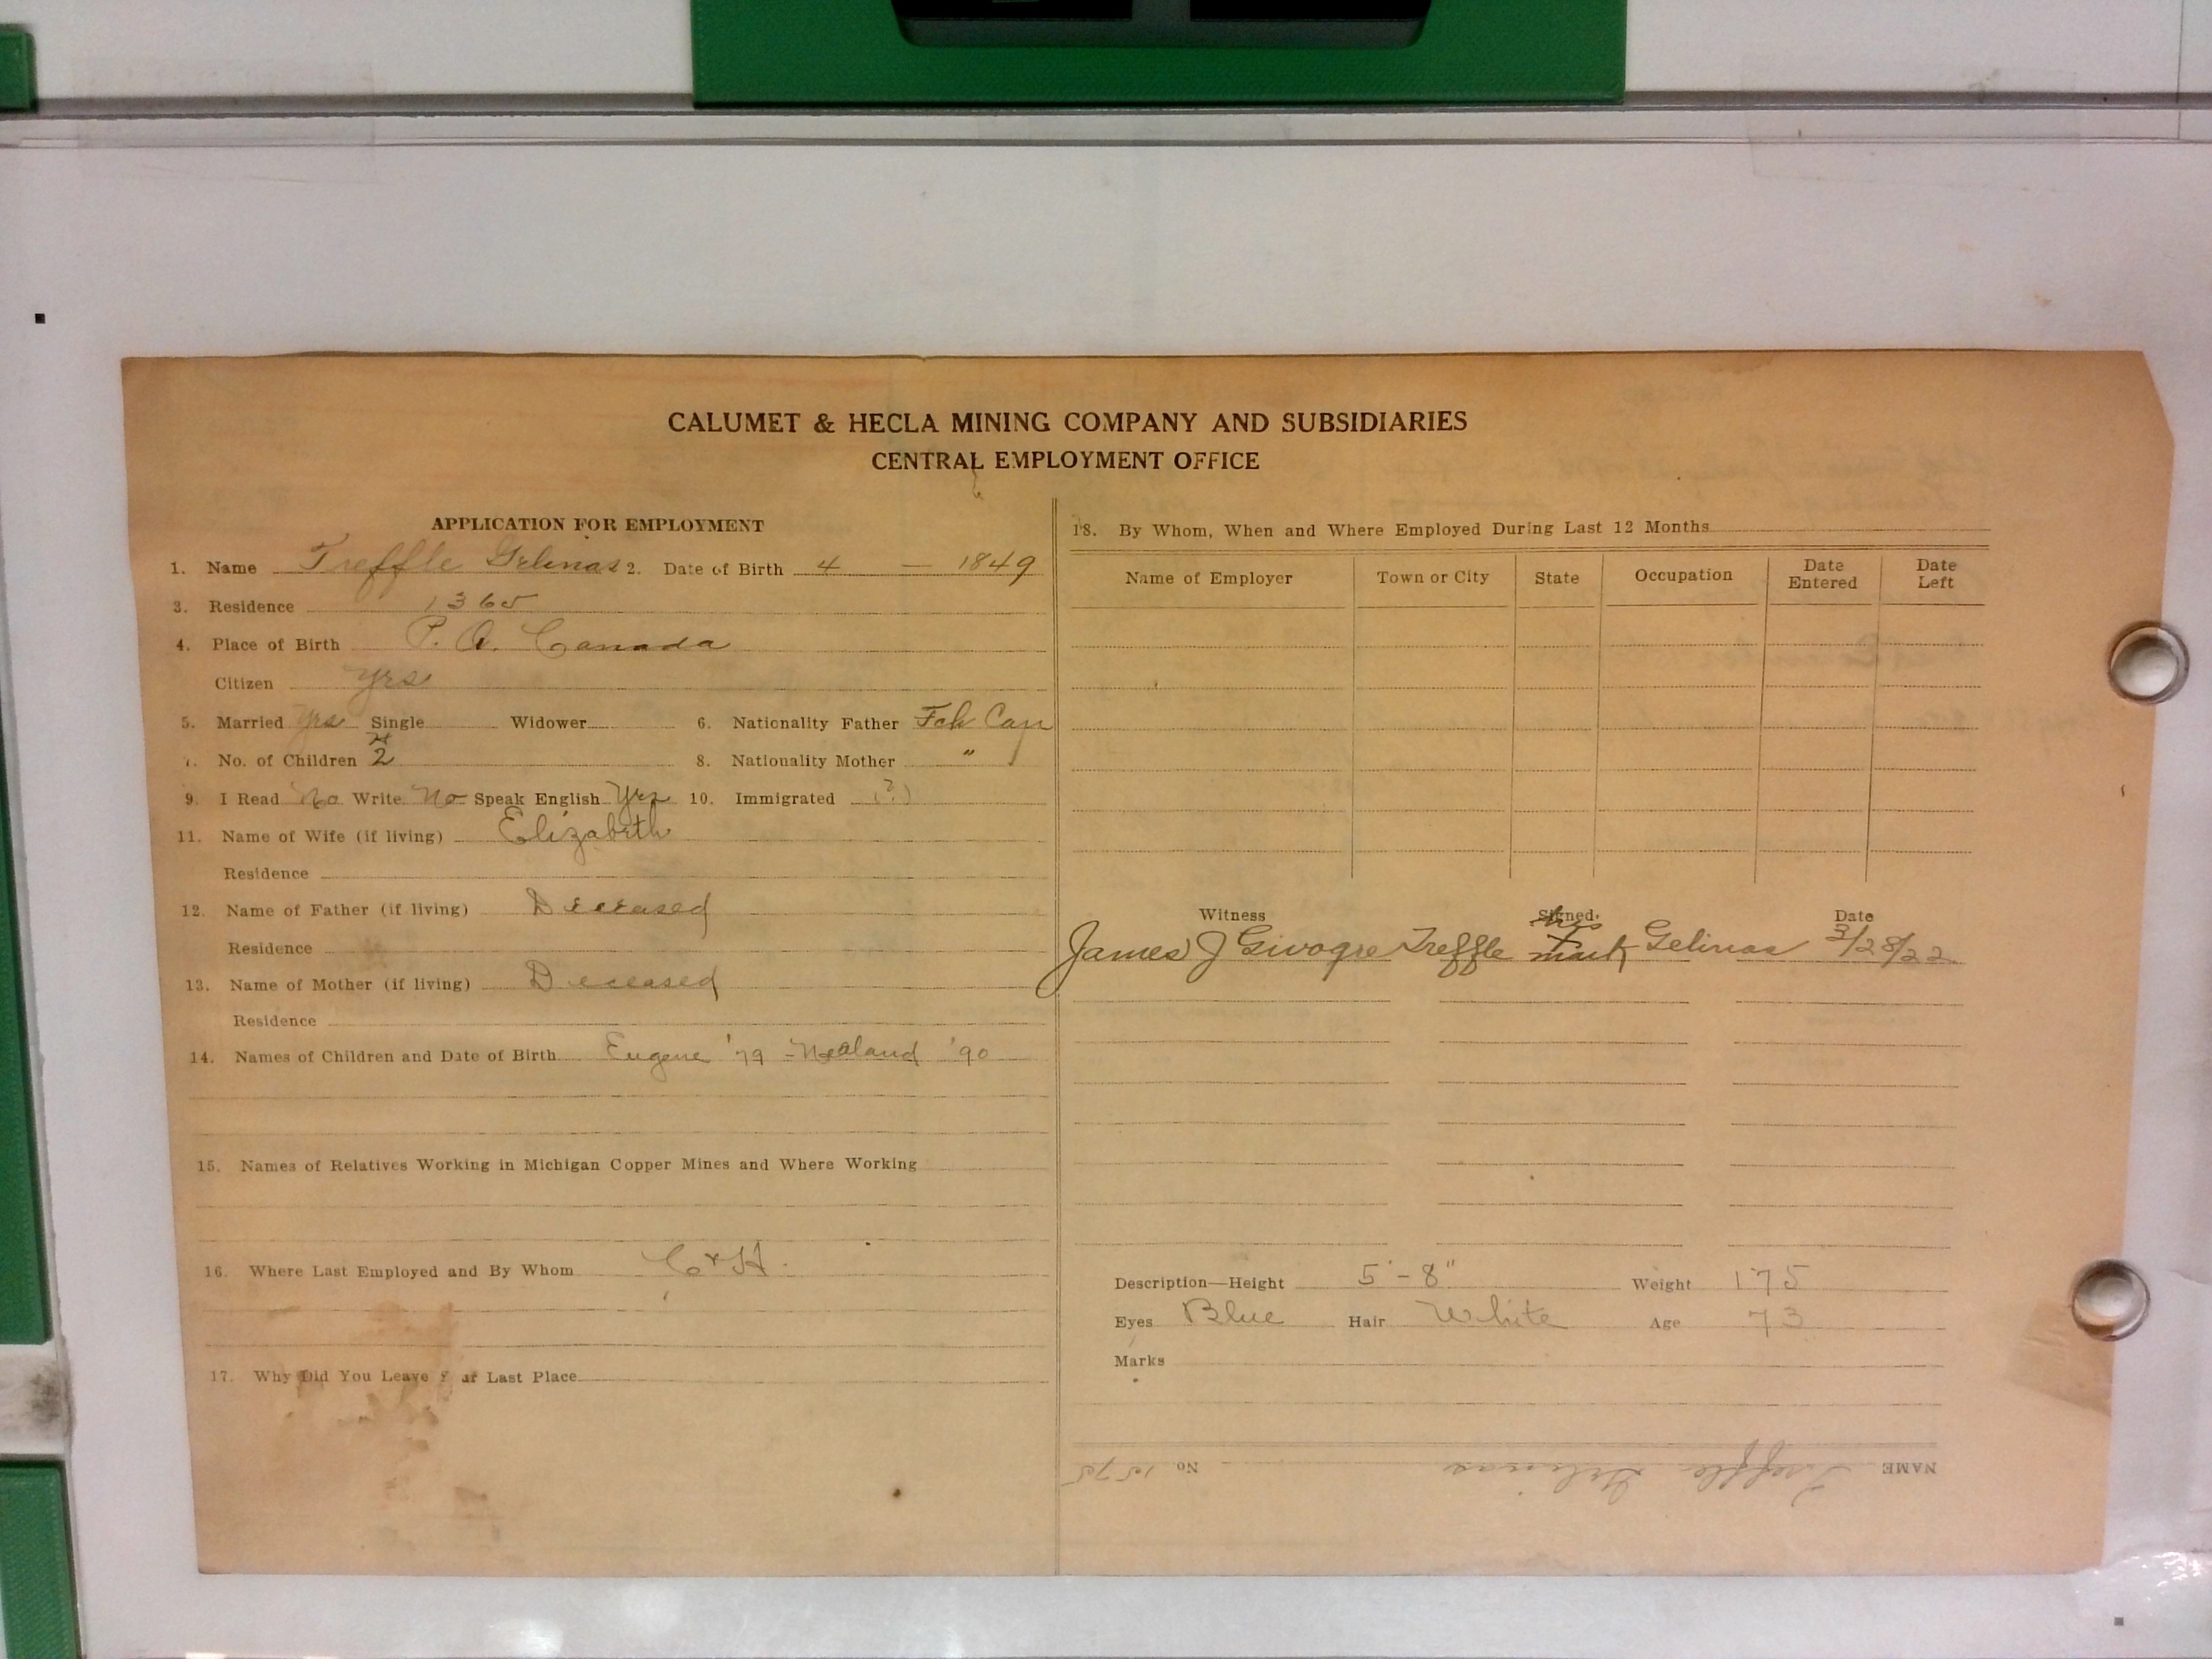 CALUMET & HECLA MINING COMPANY AND SUBSIDIARIES
CENTRAL EMPLOYMENT OFFICE
APPLICATION FOR EMPLOYMENT
1. Name Treffle Gelinas 2. Date of Birth 4 — 1849
3. Residence 1365
4. Place of Birth P. Q. Canada
Citizen Yes
5. Married Yes Single Widower 6. Nationality Father Fch Can
7. No. of Children 2 8. Nationality Mother "
9. I Read No Write No Speak English Yes 10. Immigrated (?)
11. Name of Wife (if living) Elizabeth
Residence
12. Name of Father (if living) Deceased
Residence
13. Name of Mother (if living) Deceased
Residence
14. Names of Children and Date of Birth Eugene '79 - '90
15. Names of Relatives Working in Michigan Copper Mines and Where Working
16. Where Last Employed and By Whom C & H.
17. Why Did You Leave Last Place
18. By Whom, When and Where Employed During Last 12 Months
Name of Employer Town or City State Occupation Date Entered Date Left
Witness Signed Date
James J Treffle his x mark Gelinas 3/28/22
Description—Height 5'-8" Weight 175
Eyes Blue Hair White Age 73
Marks
NAME Treffle Gelinas No 1575